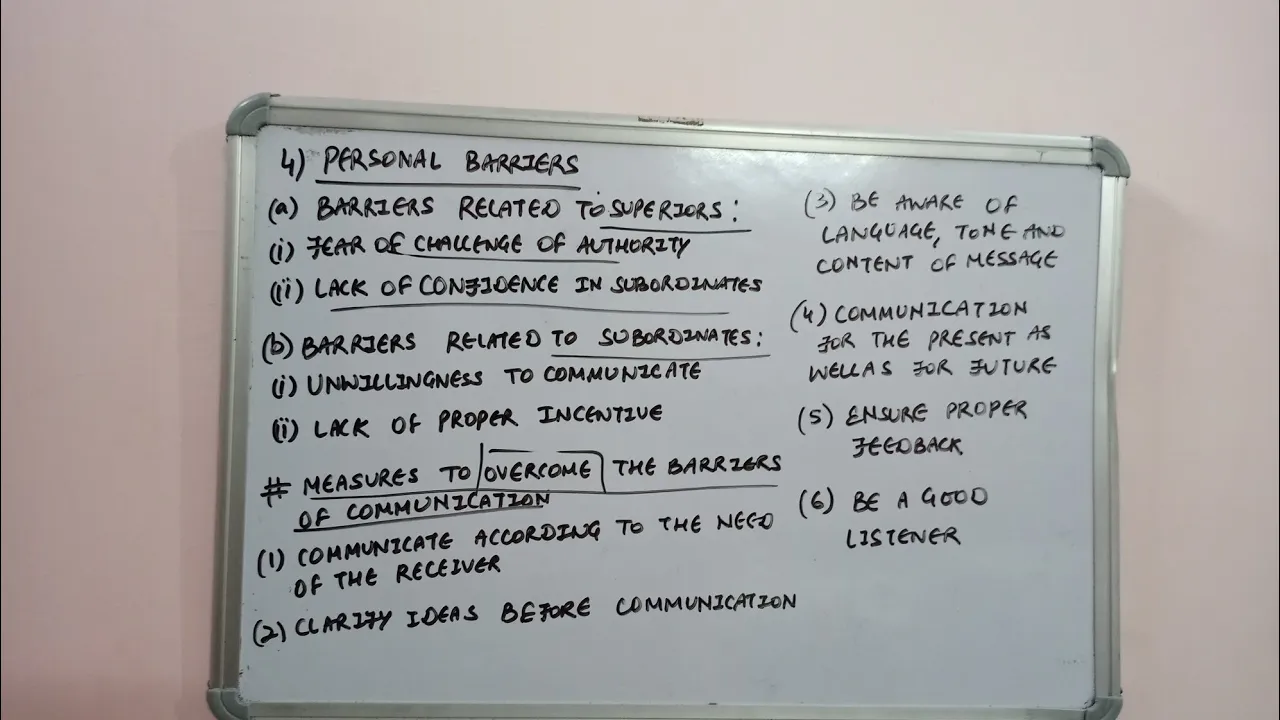 4) PERSONAL BARRIERS
(a) BARRIERS RELATED TO SUPERIORS:
(i) FEAR OF CHALLENGE OF AUTHORITY
(ii) LACK OF CONFIDENCE IN SUBORDINATES
(b) BARRIERS RELATED TO SUBORDINATES:
(i) UNWILLINGNESS TO COMMUNICATE
(ii) LACK OF PROPER INCENTIVE
# MEASURES TO OVERCOME THE BARRIERS
OF COMMUNICATION
(1) COMMUNICATE ACCORDING TO THE NEED
OF THE RECEIVER
(2) CLARIFY IDEAS BEFORE COMMUNICATION
(3) BE AWARE OF
LANGUAGE, TONE AND
CONTENT OF MESSAGE
(4) COMMUNICATION
FOR THE PRESENT AS
WELL AS FOR FUTURE
(5) ENSURE PROPER
FEEDBACK
(6) BE A GOOD
LISTENER